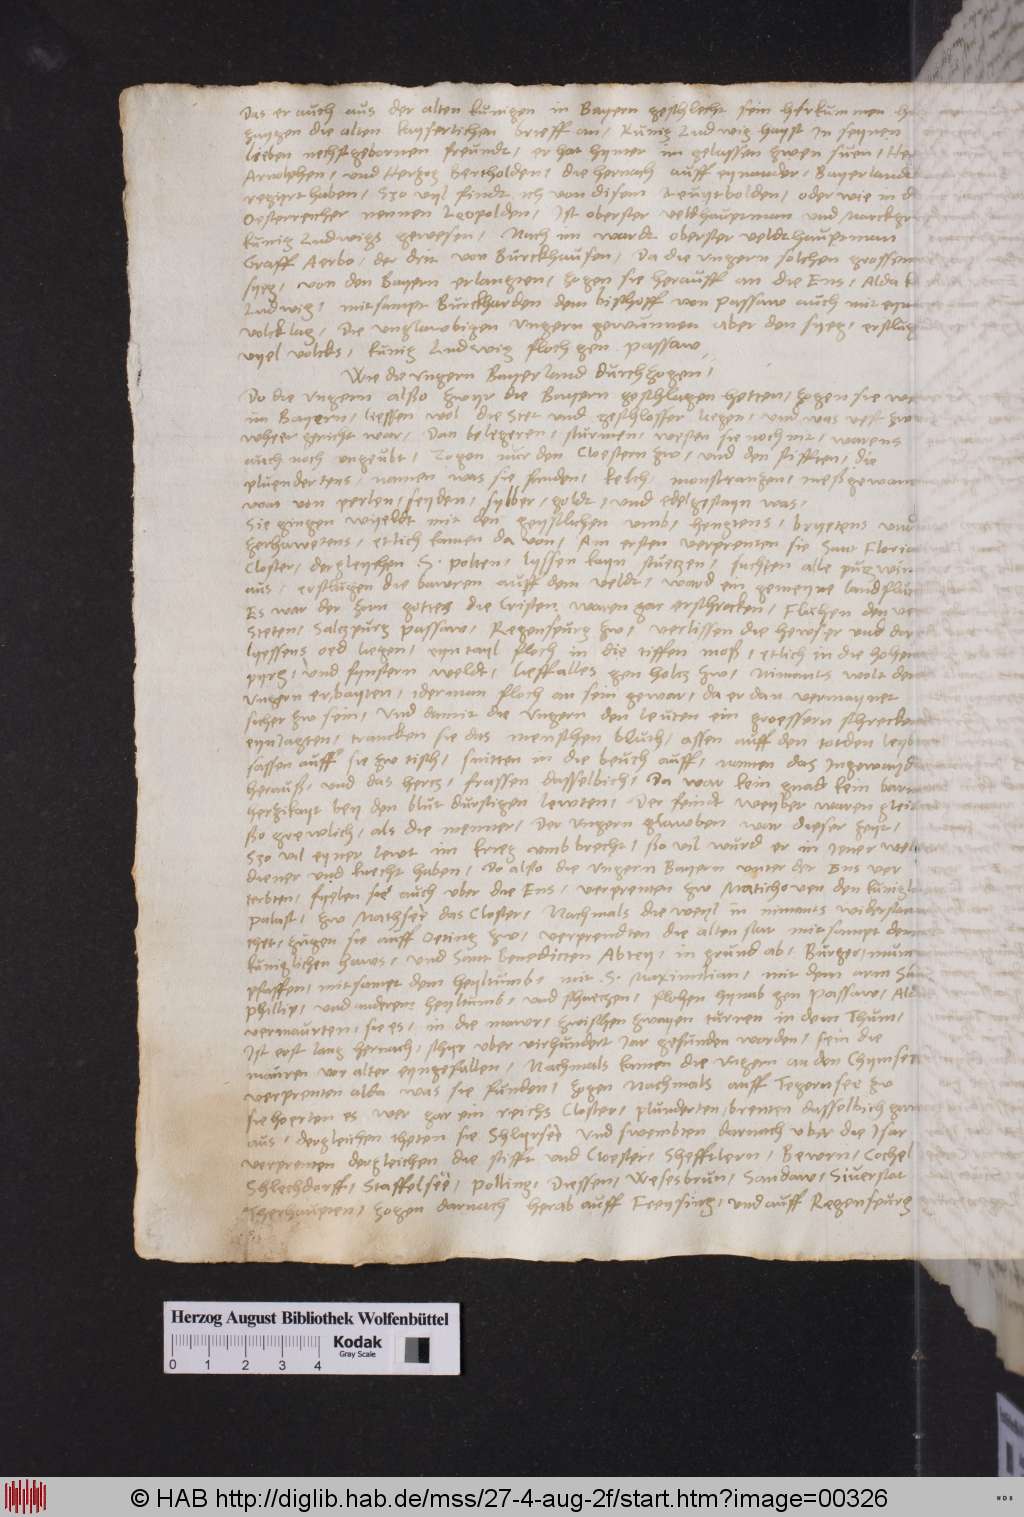 Das er auch aus der alten kunigen in Bayern geschlecht sein herkummen
zaygen die alten kayserlichen brieff an, Kunig Ludwig hayst in seynen
lieben nechstgebornen freundt, er hat hynter im gelassen zwen suen,
Arnolphen, und Hertzog Bertholden, die hernach auff eynander, Bayerlandt
regirt haben, Szo vyl findt ich von disem Leuytbolden, oder wie in
Oesterreicher nennen Leopolden, Ist oberster veldhauptman und Marckgr
kunig Ludwigs gewesen, Nach im wardt oberster veldthauptman
Graff Aerbo, der drit von Burckhausen, Da die ungern solchen grossen
syeg, von den Bayern erlangten, zogen sie herauff an die Ens, Alda
Ludwig, mitsampt Burckharden dem bischoff von passaw auch mit
volck lag, Die unglawbigen ungern gewunnen aber den syeg, erschlug
vyel volcks, kunig Ludwig floch gen passaw
Wie die ungern Bayerland durchzogen,
Do die ungern alßo zwyr die Bayern geschlagen hetten, zogen sie
im Bayern, liessen wol die Stet und geschlosser liegen, und was vest
wheer gericht war, Dan belegeren, sturmen, westen sie noch nit, warens
auch noch ungeubt, Zogen nur den Cloestern zw, und den stifften, die
pluendertens, namen was sie funden, kelch, monstranzen, meßgewant
von perlen, seyden, sylber, goldt, und edelgestayn was,
Sie gingen wyeldt mit den geystlichen umb, hengtens, bryetens und
zerhawetens, etlich kamen da von, Am ersten verprenten sie Sant Florian
Closter, dergleychen S. polten, lyssen kayn stuetzen, suchten alle
aus, erschlugen die bawren auff dem veldt, ward ein gemeyne landflu
Es war der zorn gottes die Cristen waren gar erschrocken, Flohen den
Steten, Salczpurg passaw, Regenspurg zw, verlissen die hewser und
lyessens oed liegen, eyn tayl floch in die tieffen moß, etlich in die hohen
pyrg, und fynstern weldt, lieff alles gen holcz zw, Nimants wolt der
ungern erbayten, iderman floch an sein gewar, da er dan vermaynet
sicher zw sein, Und damit die ungern den leuten ein groessern schrecken
eynjagten, trancken sie das menschen bluch, assen auff den totden
sassen auff sie zw tisch, snitten in die beuch auff, namen das Ingeways
herauß, und das hercz, frassen dasselbich, Da war kein gnadt kein barm
herzikayt bey den blut durstigen lewten, Der feindt weyber waren gleich
ßo grewlich, als die menner, Der ungern glawben war dieser zeyt,
Szo vil eyner lewt im krieg umb brecht, ßo vil wurd er in jener welt
diener und knecht haben, Do alßo die ungern Bayern unter der Ens ver
terbten, fyelen sie auch uber die Ens, verprenten zw Matichoven den kunigl
palast, zw Mathsee das Closter, Nachmals die weyl in nimants widerstan
thet, zugen sie auff Oeting zw, verprendten die alten stat mitsampt dem
kuniglichen haws, und Sant Benedicten Abtey, in grund ab, Burger,
pfaffen, mitsampt dem heyltumb, mit S. Maximilian, mit dem arm San
Phillip, und anderem heyltumb, und schaeczen, flohen hynab gen Passaw,
vermaurten, sie es, in die mawr, zwischen zwayen turnen in dem Thum,
Ist erst lang hernach, schyr uber virhundert Jar gefunden worden, sein die
mauren vor alter eyngefallen, Nachmals kamen die ungern an den Chymsee
verprenten alda was sie funden, zogen Nachmals auff Tegernsee zw
sie hoerten es wer gar ein reichs Closter, plunderten, brenten dasselbich gar
aus, dergleichen theten sie Shlyrsee und swembten darnach uber die Isar
verprenten dergleichen die stifft und Cloester, Shefftlern, Bewrn, Cochel
Shlechdorff, Staffelsee, Polling, Diessen, Wesesbrun, Sandaw, Siverstat
Therhaupten, zogen darnach herab auff Freysing, und auff Regenspurg
Herzog August Bibliothek Wolfenbüttel
Kodak
Gray Scale
0 1 2 3 4
© HAB http://diglib.hab.de/mss/27-4-aug-2f/start.htm?image=00326